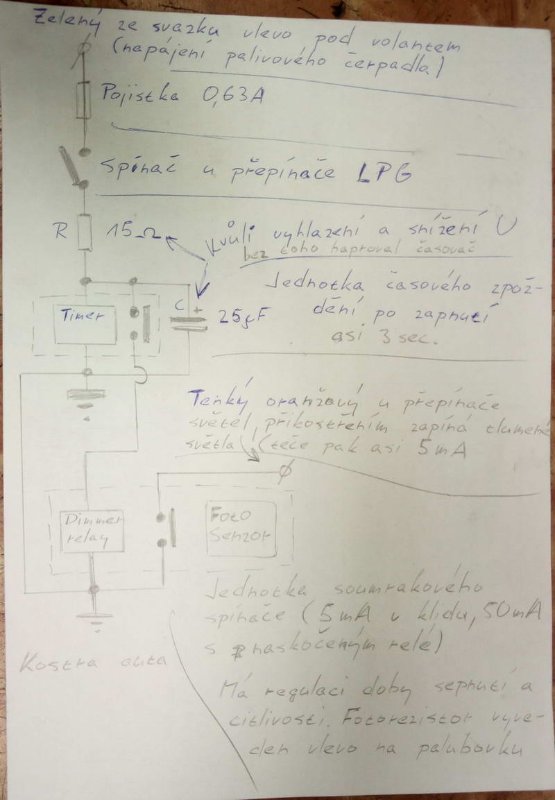 Zelený ze svazku vlevo pod volantem
(napájení palivového čerpadla)
Pojistka 0,63A
Spínač u přepínače LPG
R 15Ω
Kvůli vyhlazení a snížení U
bez toho napracoval časovač
Jednotka časového zpož-
dění po zapnutí
asi 3 sec.
Timer
C + 25µF
Tenký oranžový u přepínače
světel, přikostřením zapíná tlumená
světla (teče pak asi 5mA
Dimmer
relay
Foto
Senzor
Jednotka soumrakového
spínače (5mA v klidu, 50mA
s naskočeným relé)
Kostra auta
Má regulaci doby sepnutí a
citlivosti. Fotorezistor vyve-
den vlevo na palubovku